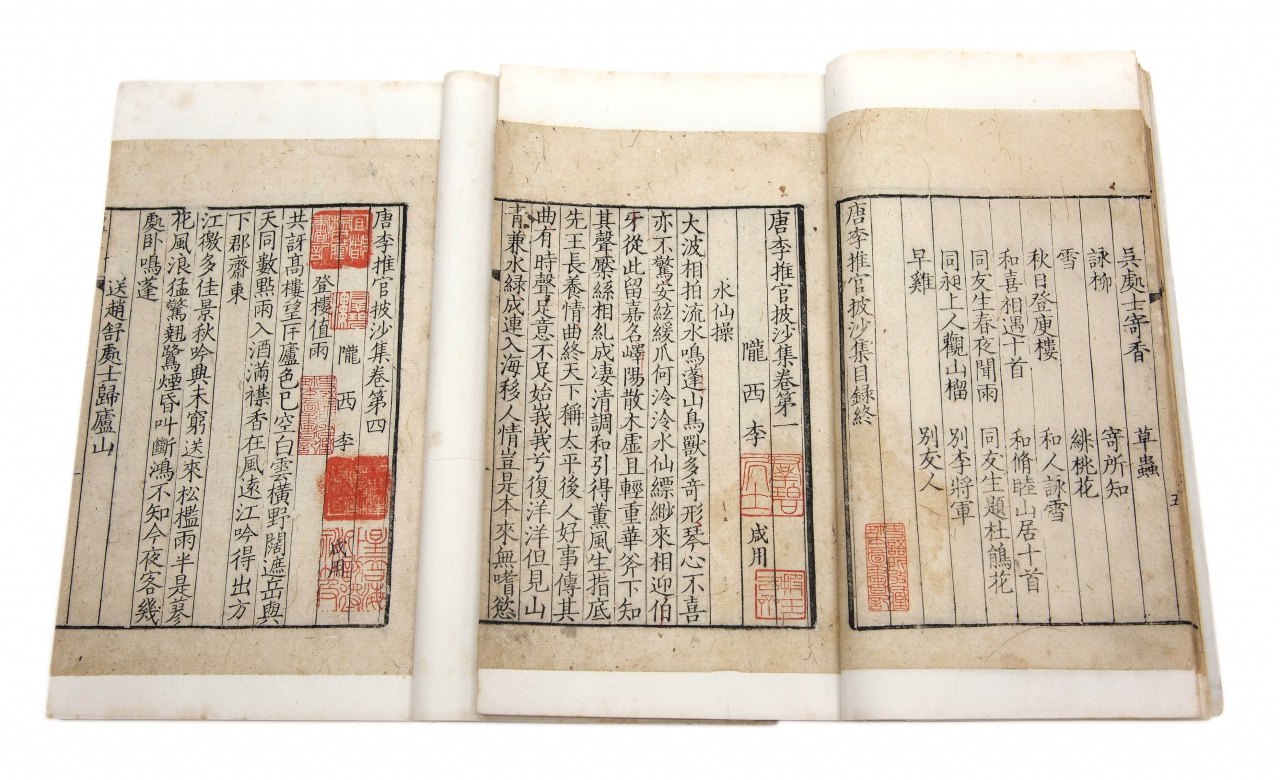 吳處士寄香　草蟲
詠柳　寄所知
雪　緋桃花
秋日登庾樓　和人詠雪
和喜相遇十首　和脩睦山居十首
同友生春夜聞雨　同友生題杜鵑花
同昶上人觀山榴　別李將軍
早雞　別友人
唐李推官披沙集目録終
五
唐李推官披沙集卷第一
隴西李　咸用
水仙操
大波相拍流水鳴蓬山鳥獸多奇形琴心不喜
亦不驚安絃緩爪何泠泠水仙縹緲來相迎伯
牙從此留嘉名嶧陽散木虛且輕重華斧下知
其聲㕓絲相糺成凄清調和引得薫風生指底
先王長養情曲終天下稱太平後人好事傳其
曲有時聲足意不足始峩峩兮復洋洋但見山
青兼水緑成連入海移人情豈是本來無嗜慾
唐李推官披沙集卷第四
隴西李　咸用
登樓值雨
共訝高樓望匡廬色已空白雲橫野闊遮岳與
天同數點雨入酒滿襟香在風遠江吟得出方
下郡齋東
江徼多佳景秋吟興未窮送來松檻雨半是蓼
花風浪猛驚翹鷺煙昏叫斷鴻不知今夜客幾
處卧鳴蓬
送趙舒處士歸廬山